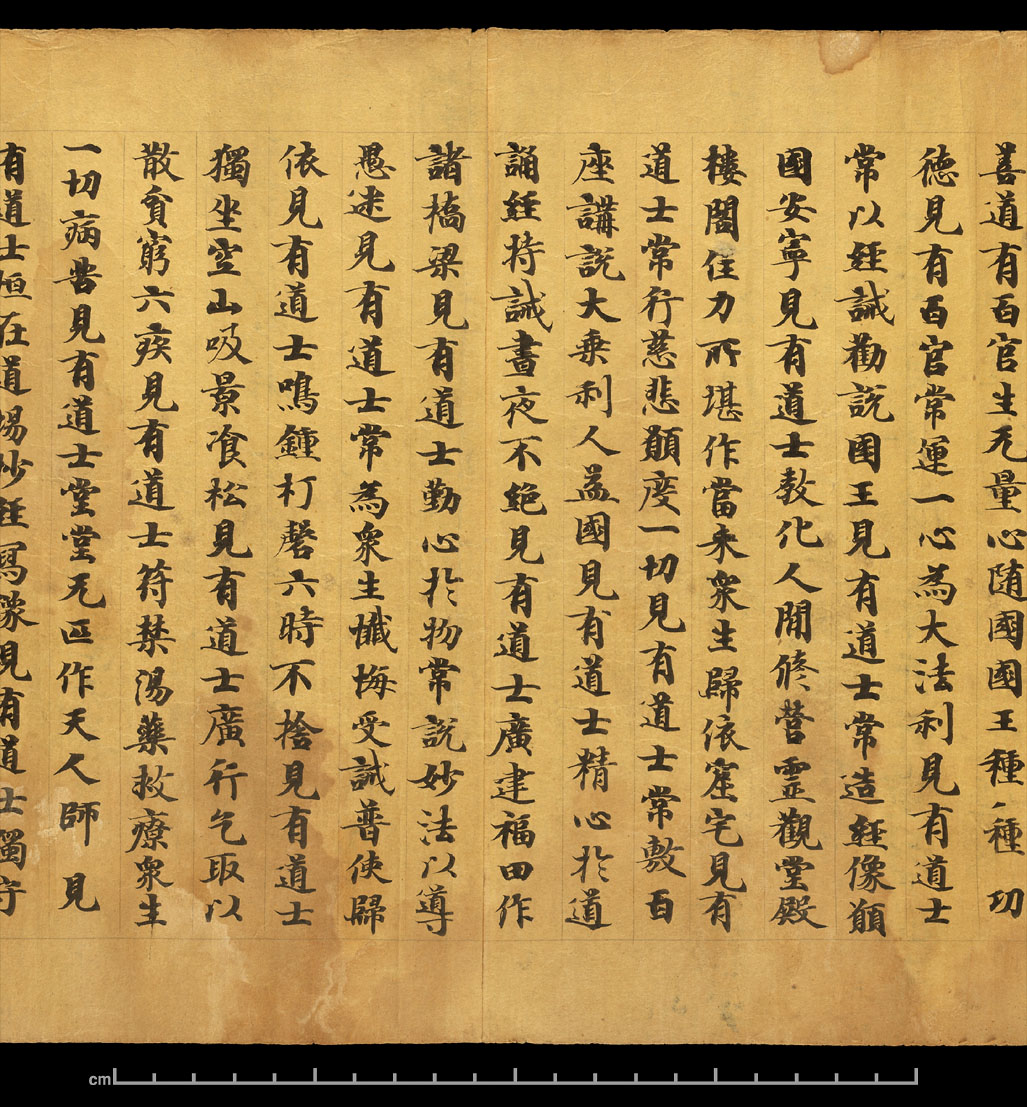 善道有百官生无量心随國國王種〻種功
德見有百官常運一心為大法利見有道士
常以經誡勸説国王見有道士常造經像願
國安寧見有道士教化人間修营靈觀堂殿
樓閣住力所堪作當来衆生歸依窟宅見有
道士常行慈悲願度一切見有道士常敷百
座講説大乗利人益國見有道士精心於道
誦經持誡晝夜不絶見有道士廣建福田作
諸橋梁見有道士勤心於物常説妙法以導
愚迷見有道士常為衆生懺悔受誡普使歸
依見有道士鳴鍾打磬六時不捨見有道士
獨坐空山吸景飡松見有道士廣行乞取以
散貧窮六疾見有道士符禁湯藥救療衆生
一切病苦見有道士堂堂无匹作天人師見
有道士恒在道場抄經寫像見有道士獨守
cm